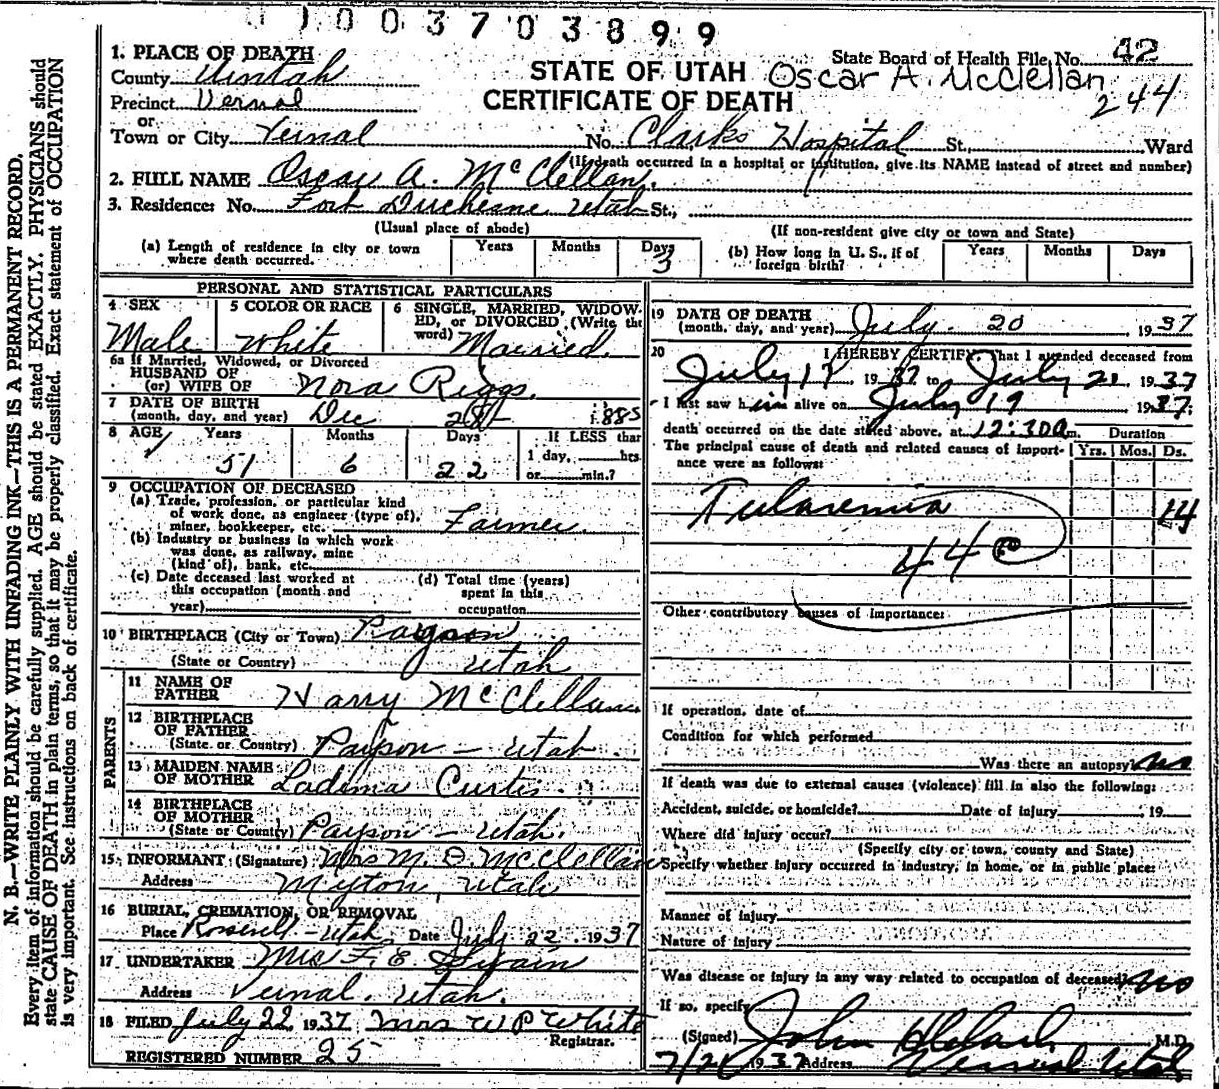 1003703899
1. PLACE OF DEATH
County Uintah
Precinct Vernal
or
Town or City Vernal No. Clarks Hospital St., Ward
STATE OF UTAH
CERTIFICATE OF DEATH
State Board of Health File No. 42
Oscar A. McClellan
244
(If death occurred in a hospital or institution, give its NAME instead of street and number)
2. FULL NAME Oscar A. McClellan.
3. Residence: No. Fort Duchesne Utah St.,
(Usual place of abode) (If non-resident give city or town and State)
(a) Length of residence in city or town where death occurred. Years Months Days 3
(b) How long in U. S., if of foreign birth? Years Months Days
PERSONAL AND STATISTICAL PARTICULARS
4 SEX Male
5 COLOR OR RACE White
6 SINGLE, MARRIED, WIDOWED, or DIVORCED (Write the word) Married.
6a If Married, Widowed, or Divorced
HUSBAND OF
(or) WIFE OF Nora Riggs.
7 DATE OF BIRTH
(month, day, and year) Dec 28 1885
8 AGE Years 51 Months 6 Days 22
If LESS than
1 day, hrs
or min.?
9 OCCUPATION OF DECEASED
(a) Trade, profession, or particular kind
of work done, as engineer (type of),
miner, bookkeeper, etc. Farmer
(b) Industry or business in which work
was done, as railway, mine
(kind of), bank, etc.
(c) Date deceased last worked at
this occupation (month and
year)
(d) Total time (years)
spent in this
occupation
10 BIRTHPLACE (City or Town) Payson
(State or Country) Utah
PARENTS
11 NAME OF
FATHER Harry McClellan
12 BIRTHPLACE
OF FATHER
(State or Country) Payson - Utah
13 MAIDEN NAME
OF MOTHER Ladema Curtis
14 BIRTHPLACE
OF MOTHER
(State or County) Payson - Utah.
15 INFORMANT (Signature) Mrs M. O. McClellan
Address Myton, Utah
16 BURIAL, CREMATION, OR REMOVAL
Place Utah Date July 22 1937
17 UNDERTAKER Mrs F. E. Swain
Address Vernal. Utah.
18 FILED July 22 1937 Mrs W P White
Registrar.
REGISTERED NUMBER 25
19 DATE OF DEATH
(month, day, and year) July 20 1937
20 I HEREBY CERTIFY, That I attended deceased from
July 17 1937 to July 20 1937
I last saw him alive on July 19 1937.
death occurred on the date stated above, at 12:30am. Duration
The principal cause of death and related causes of importance were as follows: Yrs. Mos. Ds.
Tularemia 14
44
Other contributory causes of importance:
If operation, date of
Condition for which performed
Was there an autopsy? no
If death was due to external causes (violence) fill in also the following:
Accident, suicide, or homicide? Date of injury , 19
Where did injury occur?
(Specify city or town, county and State)
Specify whether injury occurred in industry, in home, or in public place:
Manner of injury
Nature of injury
Was disease or injury in any way related to occupation of deceased? no
If so, specify
(Signed) John H Clark M.D.
7/21 1937 Address Vernal Utah
N. B.—WRITE PLAINLY WITH UNFADING INK—THIS IS A PERMANENT RECORD.
Every item of information should be carefully supplied. AGE should be stated EXACTLY. PHYSICIANS should
state CAUSE OF DEATH in plain terms, so that it may be properly classified. Exact statement of OCCUPATION
is very important. See instructions on back of certificate.